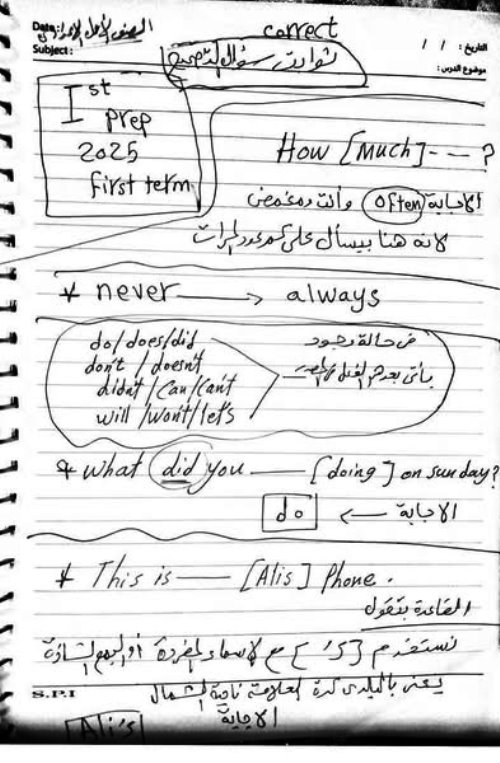 الصف الأول الإعدادي
correct
Date:
Subject:
التاريخ : / /
موضوع الدرس :
ثوابت سؤال التصحيح
1st
prep
2025
first term
How [Much] - - - ?
الاجابة often وأنت مغمض
لانه هنا بيسأل على كم عدد المرات
* never → always
do/does/did
don't / doesn't
didn't / Can / Can't
will / won't / let's
في حالة وجود
يأتي بعدهم الفعل في المصدر
* What did you —— [doing] on sunday?
الاجابة → do
* This is —— [Alis] Phone .
القاعدة بتقول
نستخدم ['s] مع الاسماء المفردة أو الجمع الشاذة
يعنى بالبلدى كدة العلامة ناحية الشمال
S.P.I
الاجابة
Ali's